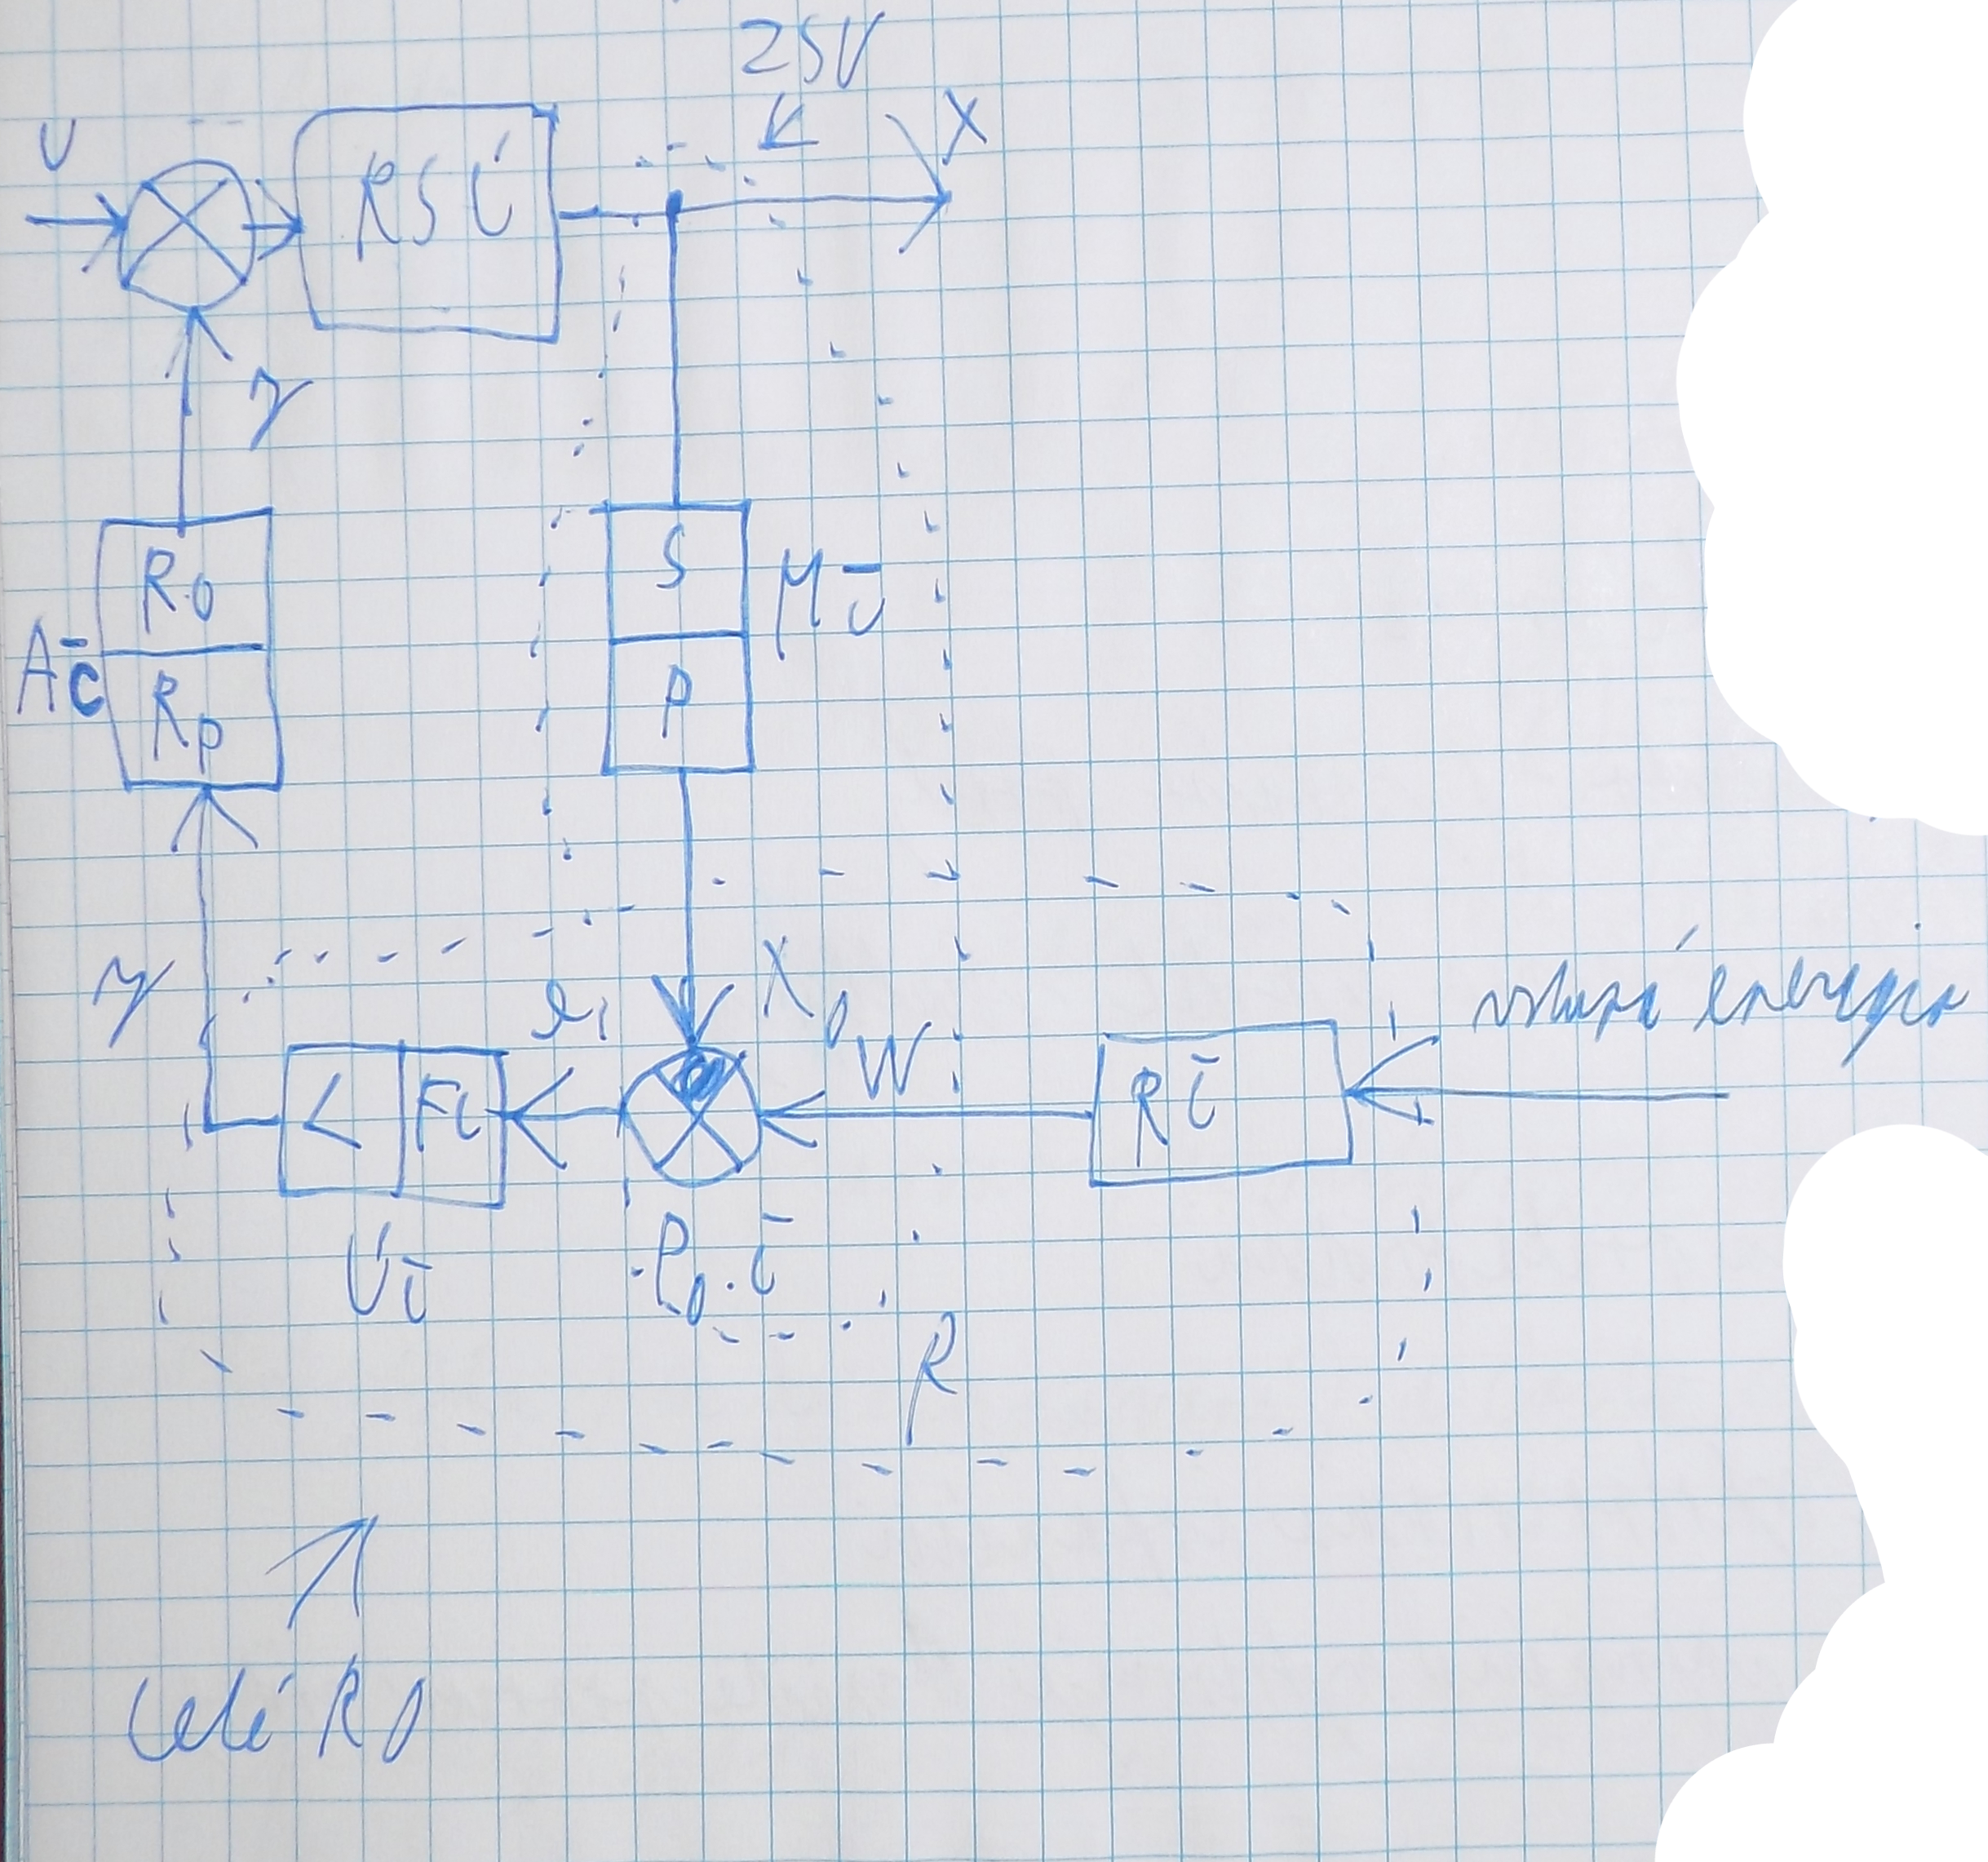 ZSV
U
X
RSČ
y
Ro
S
MČ
AČ
Rp
P
y
X₀
e₁
W
< FČ
RČ
energie
ÚČ
PoČ
R
Celé RO